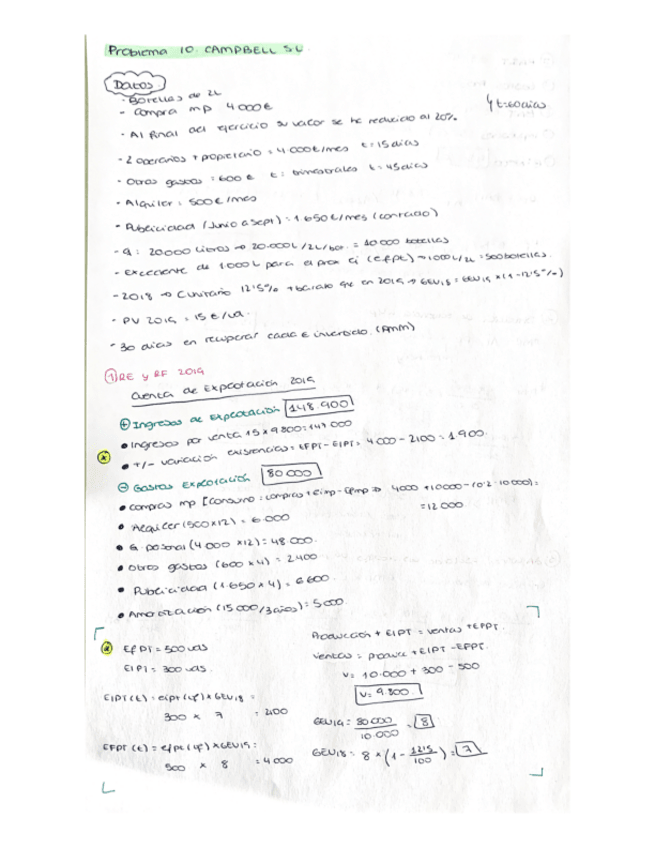 Problema 10. CAMPBELL S.L.
Datos.
- Botellas de 2L
- Compra mp 4000€ t=60dias
- Al final del ejercicio su valor se ha reducido al 20%.
- 2 operarios + propietario = 4.000€/mes t=15 dias
- Otros gastos = 600 € t: trimestrales t=45dias
- Alquiler = 500€/mes
- Publicidad (Junio a sept) = 1650€/mes (contado)
- Q: 20.000 litros → 20.000L/2L/bot = 10 000 botellas
- Excedente de 1000L para el prox ej (efpt) → 1000L/2L = 500 botellas.
- 2018 → Cunitario 12'5% + barato que en 2019 → GEU18 = GEU19 x (1-12'5%)
- PV 2019 = 15€/ud.
- 30 dias en recuperar cada € invertido. (PMM)
① RE y RF 2019
Cuenta de Explotación 2019
⊕ Ingresos de Explotación 148.900
• Ingresos por venta 15 x 9800 = 147 000
• +/- variación existencias = EFPT - EIPT = 4 000 - 2100 = 1 900.
⊖ Gastos Explotación 80 000
• compras mp [Consumo = compras + eimp - efmp ⇒ 4000 + 10000 - (0'2·10000) =
= 12 000
• Alquiler (500x12) = 6.000
• G. personal (4 000 x 12) = 48 000.
• Otros gastos (600 x 4) = 2400
• Publicidad (1.650 x 4) = 6 600.
• Amortización (15 000/3años) = 5 000.
EfPT = 500 uds
EIPT = 300 uds.
EIPT (€) = eipt (uf) x GEU18 =
300 x 7 = 2100
EFPT (€) = efpt (uf) x GEU19 =
500 x 8 = 4 000
Producción + EIPT = ventas + EFPT.
Ventas = produce + EIPT - EFPT.
V = 10.000 + 300 - 500
V = 9.800.
GEU19 = 80 000 / 10.000 = 8
GEU18 = 8 x (1 - 12'5 / 100) = 7